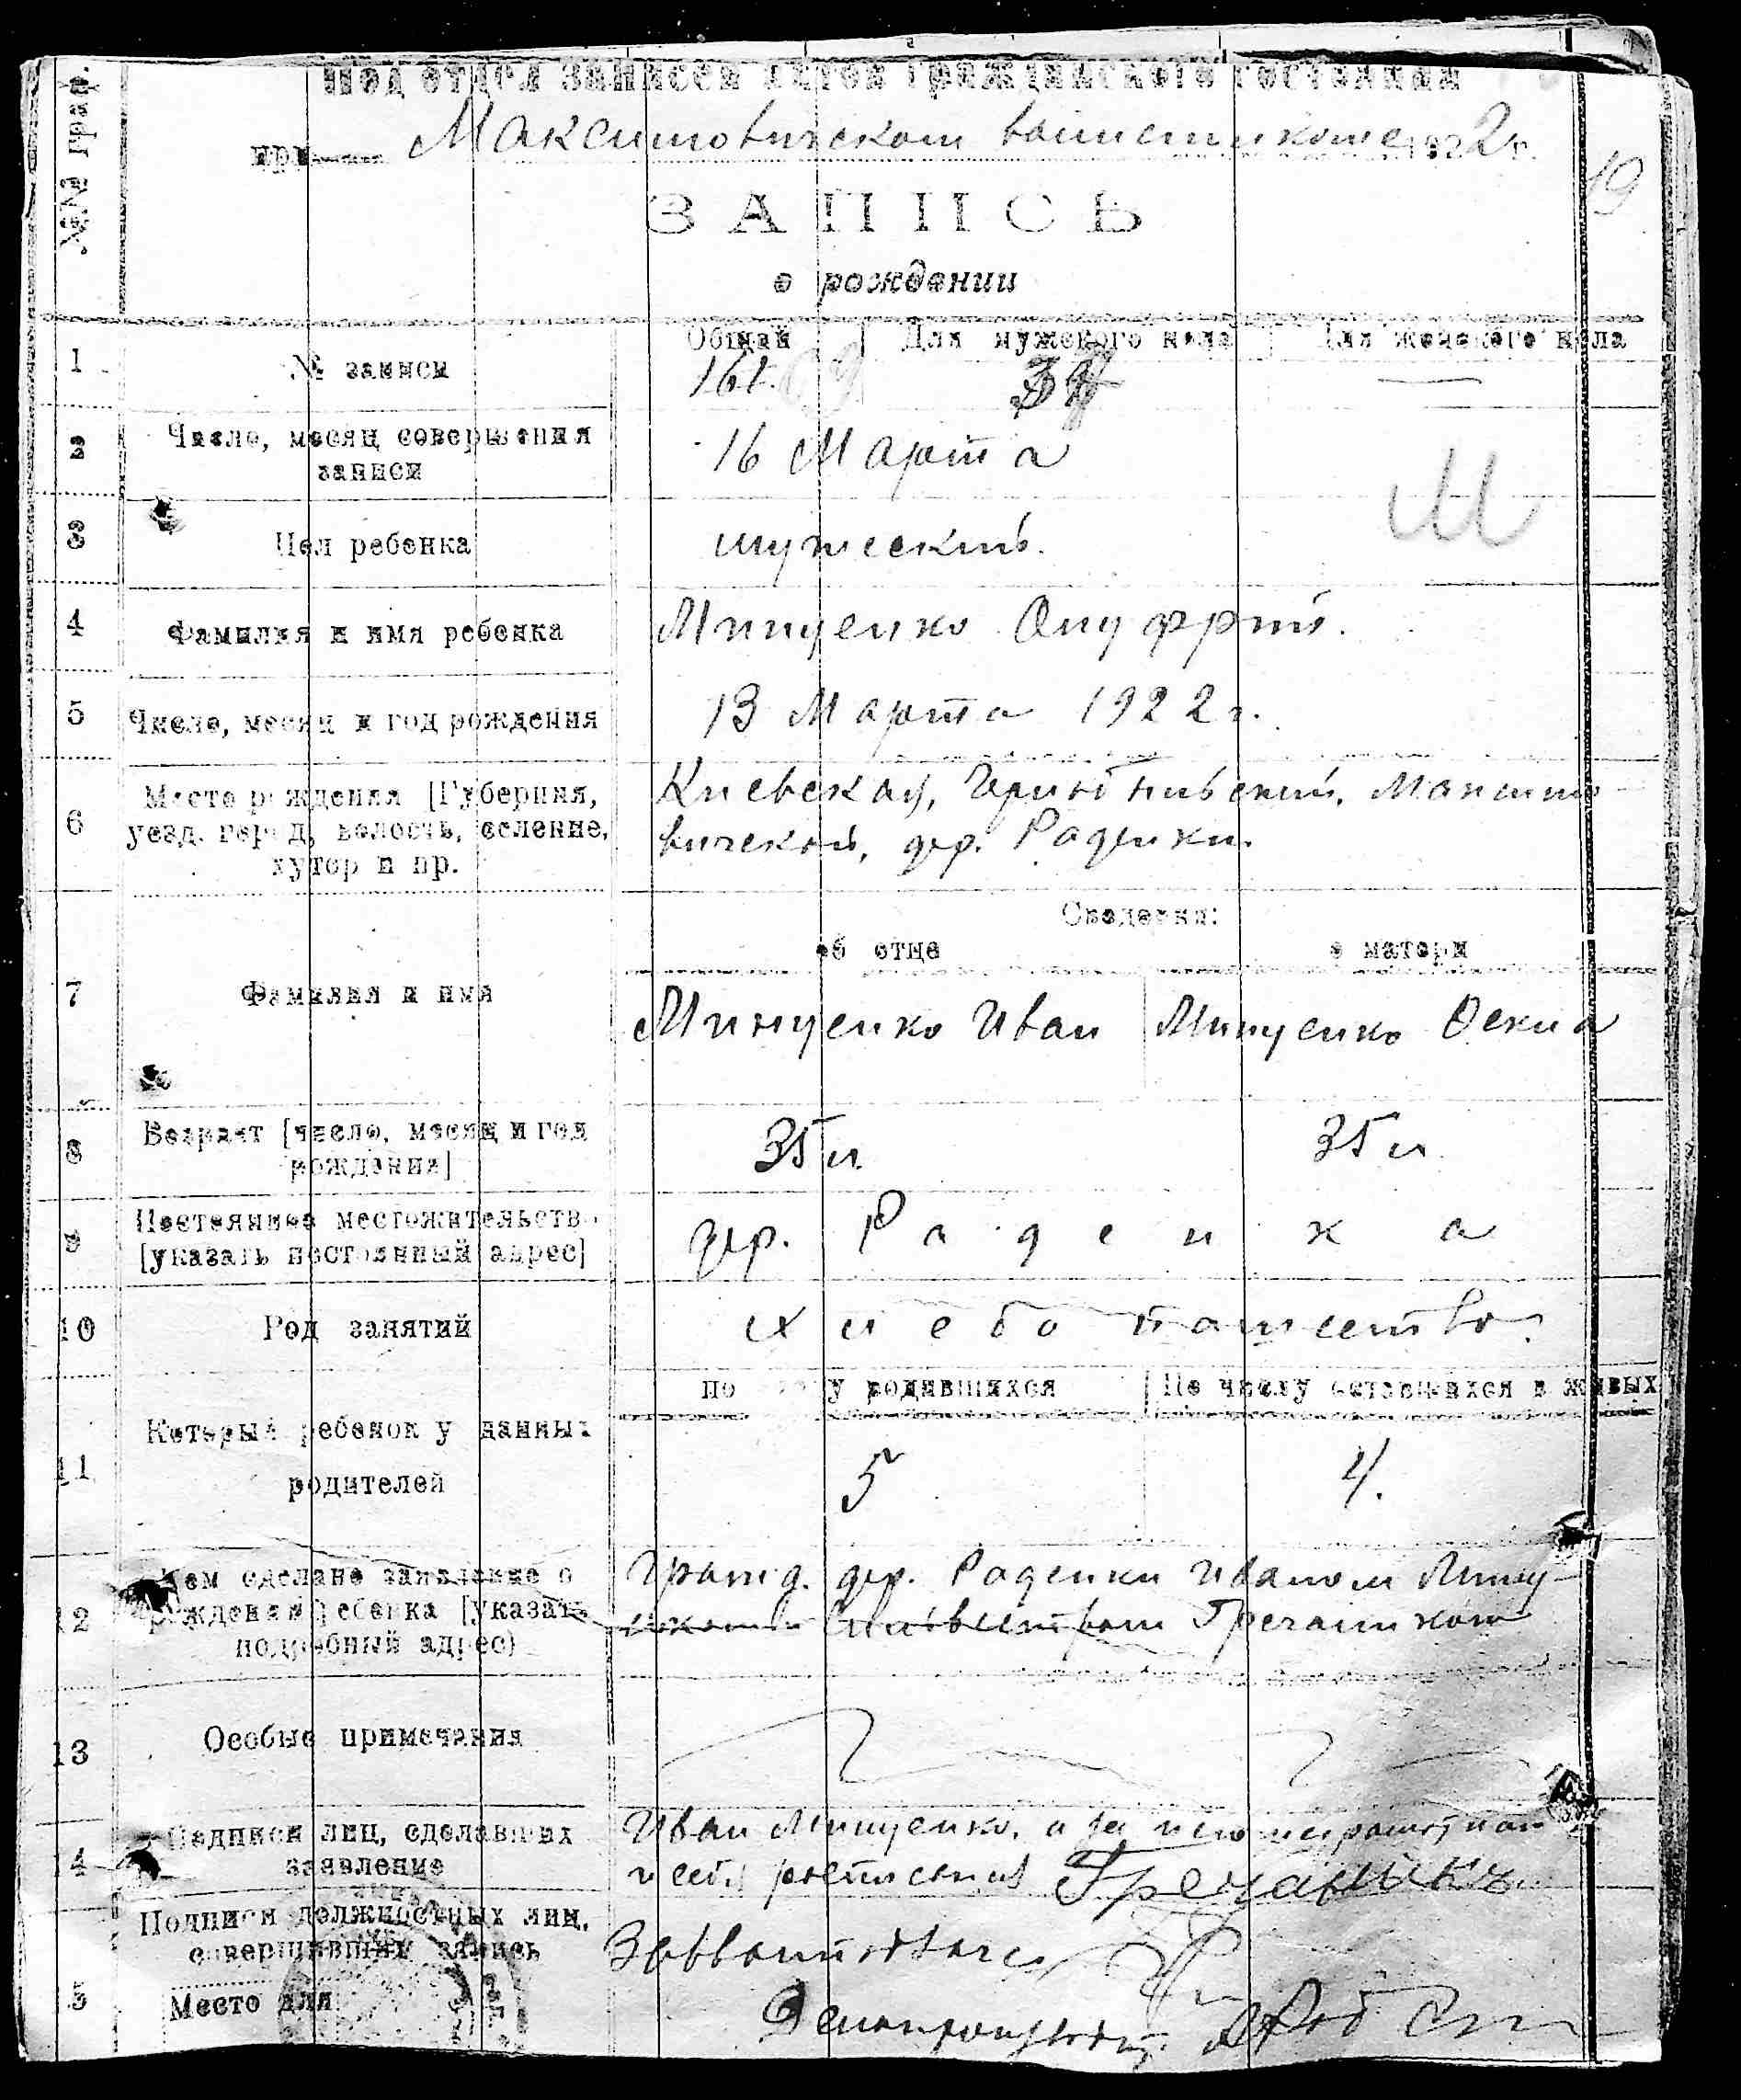 №№ граф.
Под отдел записей актов гражданского состояния
при Максимовическом волисполкоме 1922 г.
19
ЗАПИСЬ
о рождении
Общий Для мужского пола Для женского пола
1 № записи 161.
2 Число, месяц совершения
записи 16 Марта
М
3 Пол ребенка мужеский.
4 Фамилия и имя ребенка Мищенко Онуфрий.
5 Число, месяц и год рождения 13 Марта 1922 г.
6 Место рождения [Губерния,
уезд, город, волость, селение,
хутор и пр. Киевская, Чернобыльский, Максимо-
вической, дер. Раденки.
Сведения:
об отце о матери
7 Фамилия и имя Мищенко Иван Мищенко Оекла
8 Возраст [число, месяц и год
рождения] 35 л. 35 л.
9 Постоянное местожительство
[указать постоянный адрес] дер. Раденка
10 Род занятий хлебопашество.
по числу родившихся По числу оставшихся в живых
11 Который ребенок у данных
родителей 5 4.
12 Кем сделано заявление о
рождении ребенка [указать
подробный адрес) Гражд. дер. Раденки Иваном Мищ-
Гречаником
13 Особые примечания
14 Подписи лиц, сделавших
заявление Иван Мищенко, а за него неграмотном
и себя росписался Гречаникъ
Подписи должностных лиц,
совершивших запись
15 Место для
Делопроизвод.